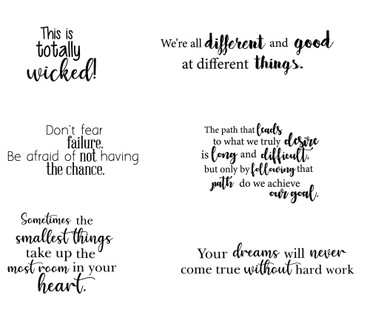 This is
totally
wicked!
We're all different and good
at different things.
Don't fear
failure.
Be afraid of not having
the chance.
The path that leads
to what we truly desire
is long and difficult,
but only by following that
path do we achieve
our goal.
Sometimes the
smallest things
take up the
most room in your
heart.
Your dreams will never
come true without hard work